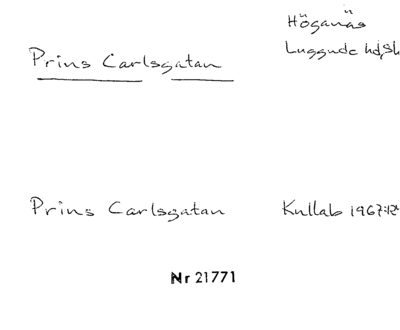 Prins Carlsgatan
Höganäs
Luggude hd, Sk
Prins Carlsgatan
Kullab 1967:
Nr 21771